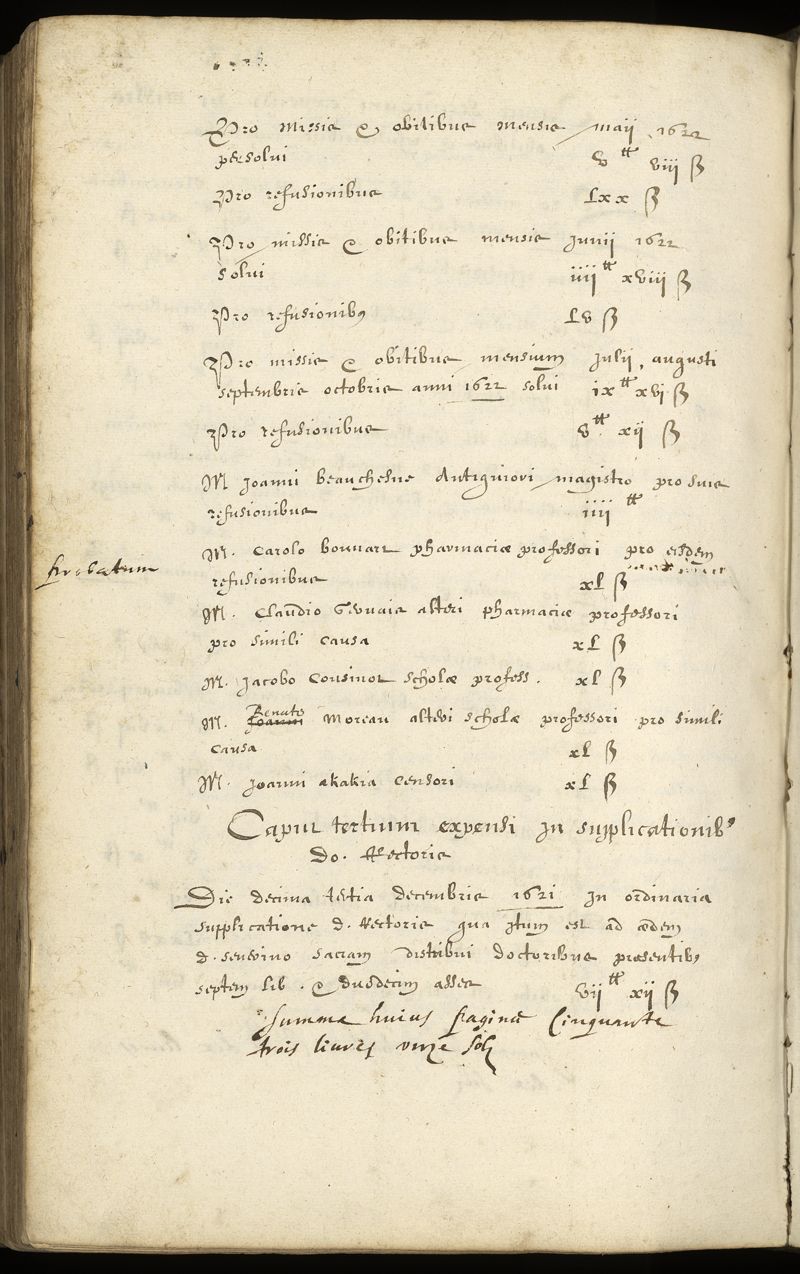 Pro missis & obitibus mensis maij 1622
persolui v ₶ viij ß
Pro refusionibus Lxx ß
Pro missis & obitibus mensis Junij 1622
solui iiij ₶ xviij ß
Pro refusionibꝰ Lv ß
Pro missis & obitibus mensium Julij, augusti
septembris octobris anni 1622 solui ix ₶ xvj ß
Pro refusionibus v ₶ xij ß
M Joanni beauchesne Antiquiori magistro pro suis
refusionibus iiij ₶
M. Carolo bouuart pharmaciæ professori pro eisdem
probatum
refusionibus xL ß
M. Claudio Geruais alteri pharmaciæ professori
pro simili causa xL ß
M. Jacobo Cousinot scholæ profess. xL ß
Renato
M. Joanni Moreau alteri scholæ professori pro simili
causa xL ß
M. Joanni akakia Censori xL ß
Caput tertium expensi in supplicationibꝰ
Do. Rectoris
Die decima tertia decembris 1621 in ordinaria
supplicatione d. Rectoris qua itum est ad ædem
d. seuerino sacram distribui doctoribus presentibꝰ
septem lib. & duodecim asses vij ₶ xij ß
summa huius paginæ Cinquante
trois liures unze solz